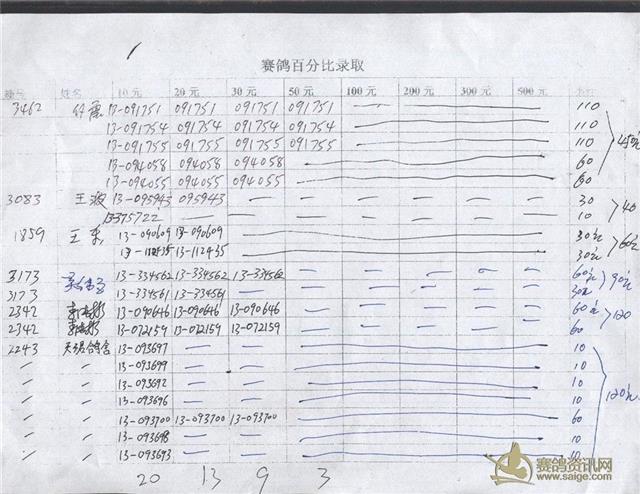 赛鸽百分比录取
棚号 姓名 10元 20元 30元 50元 100元 200元 300元 500元
3462 13-091751 091751 091751 091751 — 110
13-091754 091754 091754 091754 — 110
13-091755 091755 091755 091755 — 110
13-094058 094058 094058 — 60
13-094055 094055 094055 — 60
3083 王波 13-095943 095943 — — — — — — 30 >40
1375722 — — — — — — — 10
1859 王东 13-090609 13-090609 — 30元 >60元
13-112435 13-112435 — 30元
3173 13-334562 13-334562 13-334562 — — — — — 60元 >90元
3173 13-334561 13-334561 — — — — — — 30元
2342 13-090646 13-090646 13-090646 — — — — — 60元 >120
2342 13-072159 13-072159 13-072159 — — — — — 60
2243 13-093697 — — — 10
〃 〃 13-093699 — — — 10
〃 〃 13-093692 — — — 10
〃 〃 13-093696 — — — 10 120元
〃 〃 13-093700 13-093700 13-093700 — 60
〃 〃 13-093698 — — — 10
〃 〃 13-093693 — — — 10
20 13 9 3
赛鸽资讯网
www.saige.com